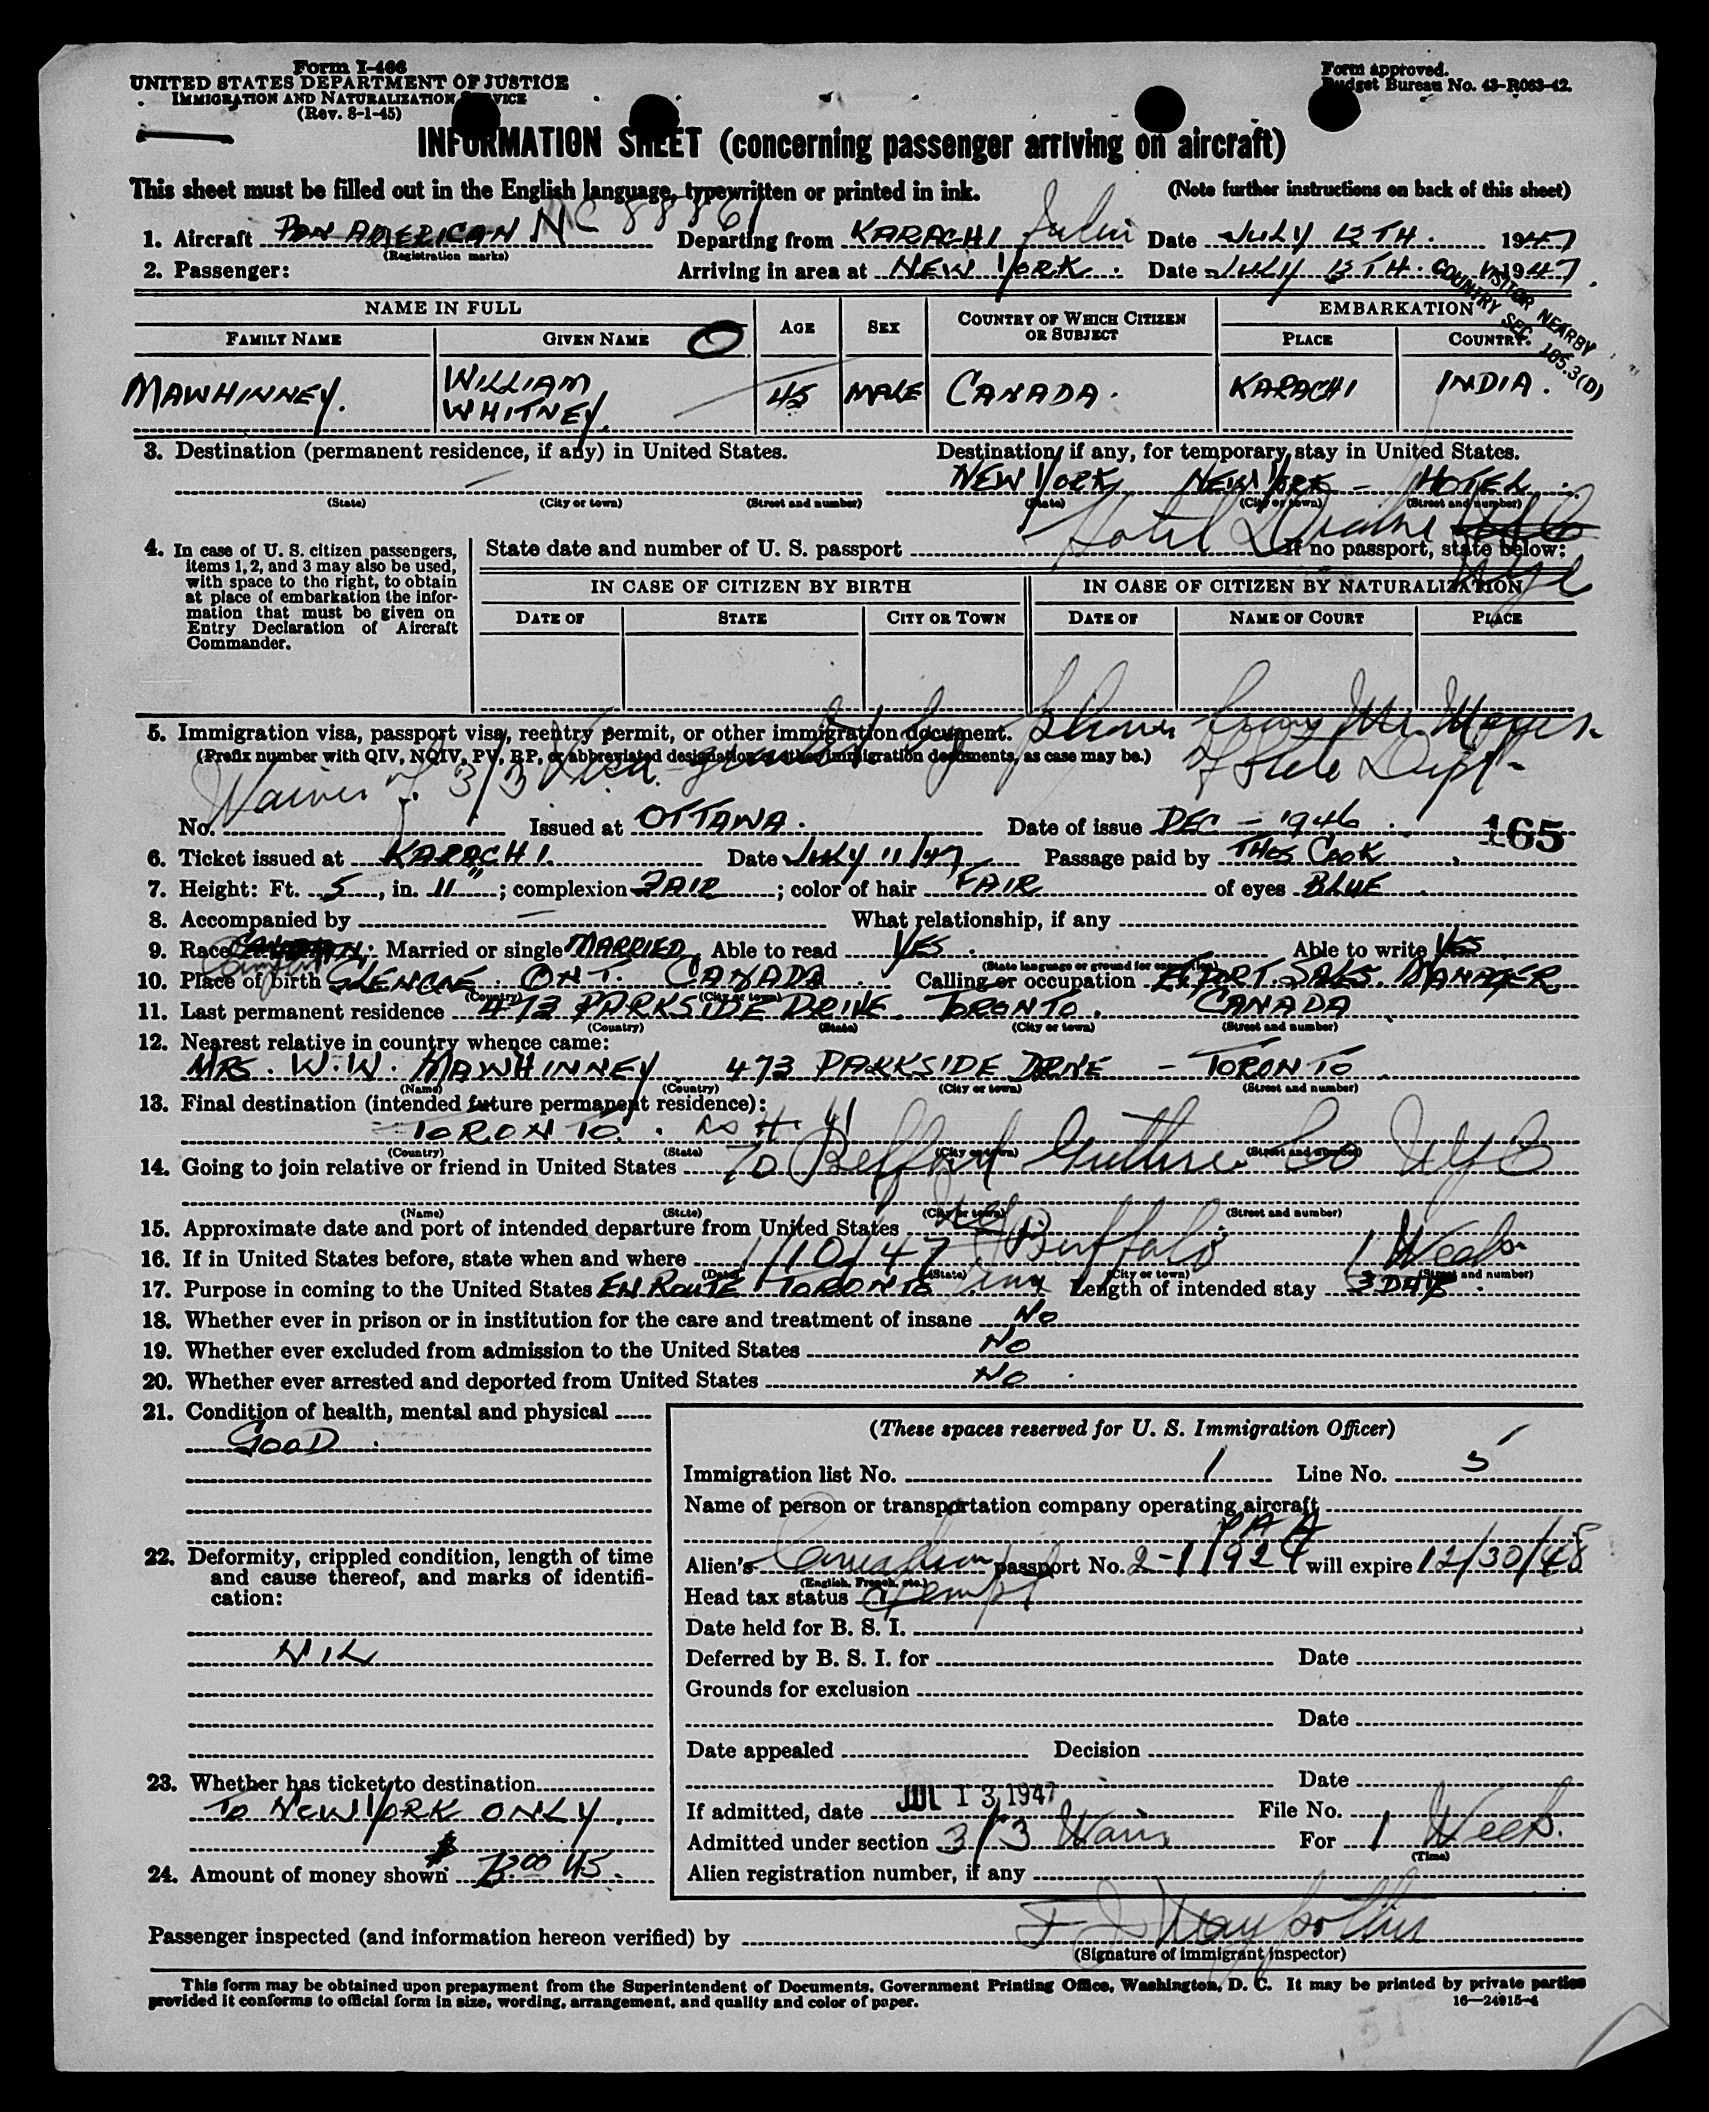 Form I-466
UNITED STATES DEPARTMENT OF JUSTICE
IMMIGRATION AND NATURALIZATION SERVICE
(Rev. 8-1-45)
Form approved.
Budget Bureau No. 43-R063-42.
INFORMATION SHEET (concerning passenger arriving on aircraft)
This sheet must be filled out in the English language, typewritten or printed in ink. (Note further instructions on back of this sheet)
1. Aircraft PAN AMERICAN NC 88861 Departing from KARACHI Date JULY 12TH. 1947
(Registration marks)
2. Passenger: Arriving in area at NEW YORK. Date JULY 13TH. 1947.
VISITOR NEARBY
COUNTRY SEC 165.3(D)
NAME IN FULL AGE SEX COUNTRY OF WHICH CITIZEN OR SUBJECT EMBARKATION
FAMILY NAME GIVEN NAME O PLACE COUNTRY
MAWHINNEY. WILLIAM WHITNEY. 45 MALE CANADA. KARACHI INDIA.
3. Destination (permanent residence, if any) in United States. Destination, if any, for temporary stay in United States.
— NEW YORK NEW YORK - HOTEL.
(State) (City or town) (Street and number) (State) (City or town) (Street and number)
Hotel
4. In case of U. S. citizen passengers, items 1, 2, and 3 may also be used, with space to the right, to obtain at place of embarkation the information that must be given on Entry Declaration of Aircraft Commander.
State date and number of U. S. passport If no passport, state below:
IN CASE OF CITIZEN BY BIRTH IN CASE OF CITIZEN BY NATURALIZATION
DATE OF STATE CITY OR TOWN DATE OF NAME OF COURT PLACE
5. Immigration visa, passport visa, reentry permit, or other immigration document.
(Prefix number with QIV, NQIV, PV, RP, or abbreviated designation of other immigration documents, as case may be.)
Waiver of 3/3 Visa granted by phone from Mr. of State Dept.
No. Issued at OTTAWA. Date of issue DEC - 1946 165
6. Ticket issued at KARACHI. Date JULY 11/47 Passage paid by THOS COOK
7. Height: Ft. 5, in. 11"; complexion FAIR; color of hair FAIR of eyes BLUE
8. Accompanied by — What relationship, if any
9. Race Married or single MARRIED Able to read YES. Able to write YES
(State language or ground for exemption)
10. Place of birth GLENCOE. ONT. CANADA Calling or occupation EXPORT SALES MANAGER
(Country) (City or town)
11. Last permanent residence 473 PARKSIDE DRIVE TORONTO. CANADA
(Country) (State) (City or town) (Street and number)
12. Nearest relative in country whence came:
MRS. W. W. MAWHINNEY 473 PARKSIDE DRIVE - TORONTO
(Name) (Country) (City or town) (Street and number)
13. Final destination (intended future permanent residence):
TORONTO. as # 11
(Country) (State) (City or town) (Street and number)
14. Going to join relative or friend in United States To Guthrie Co NYC
(Name) (State) (City or town) (Street and number)
15. Approximate date and port of intended departure from United States
16. If in United States before, state when and where 1/10/47 Buffalo 1 Week
(Date) (State) (City or town) (Street and number)
17. Purpose in coming to the United States EN ROUTE TORONTO Length of intended stay 3 DAYS.
18. Whether ever in prison or in institution for the care and treatment of insane NO
19. Whether ever excluded from admission to the United States NO
20. Whether ever arrested and deported from United States NO.
21. Condition of health, mental and physical
GOOD.
22. Deformity, crippled condition, length of time and cause thereof, and marks of identification:
NIL
23. Whether has ticket to destination
TO NEW YORK ONLY.
24. Amount of money shown $
(These spaces reserved for U. S. Immigration Officer)
Immigration list No. 1 Line No. 5
Name of person or transportation company operating aircraft
PAA
Alien's Canadian passport No. 2-1/924 will expire 12/30/48
(English, French, etc.)
Head tax status exempt
Date held for B. S. I.
Deferred by B. S. I. for Date
Grounds for exclusion
Date
Date appealed Decision
Date
If admitted, date JUL 13 1947 File No.
Admitted under section 3/3 Waiv For 1 Week.
(Time)
Alien registration number, if any
Passenger inspected (and information hereon verified) by
(Signature of immigrant inspector)
This form may be obtained upon prepayment from the Superintendent of Documents, Government Printing Office, Washington, D. C. It may be printed by private parties
provided it conforms to official form in size, wording, arrangement, and quality and color of paper. 16—24915-4